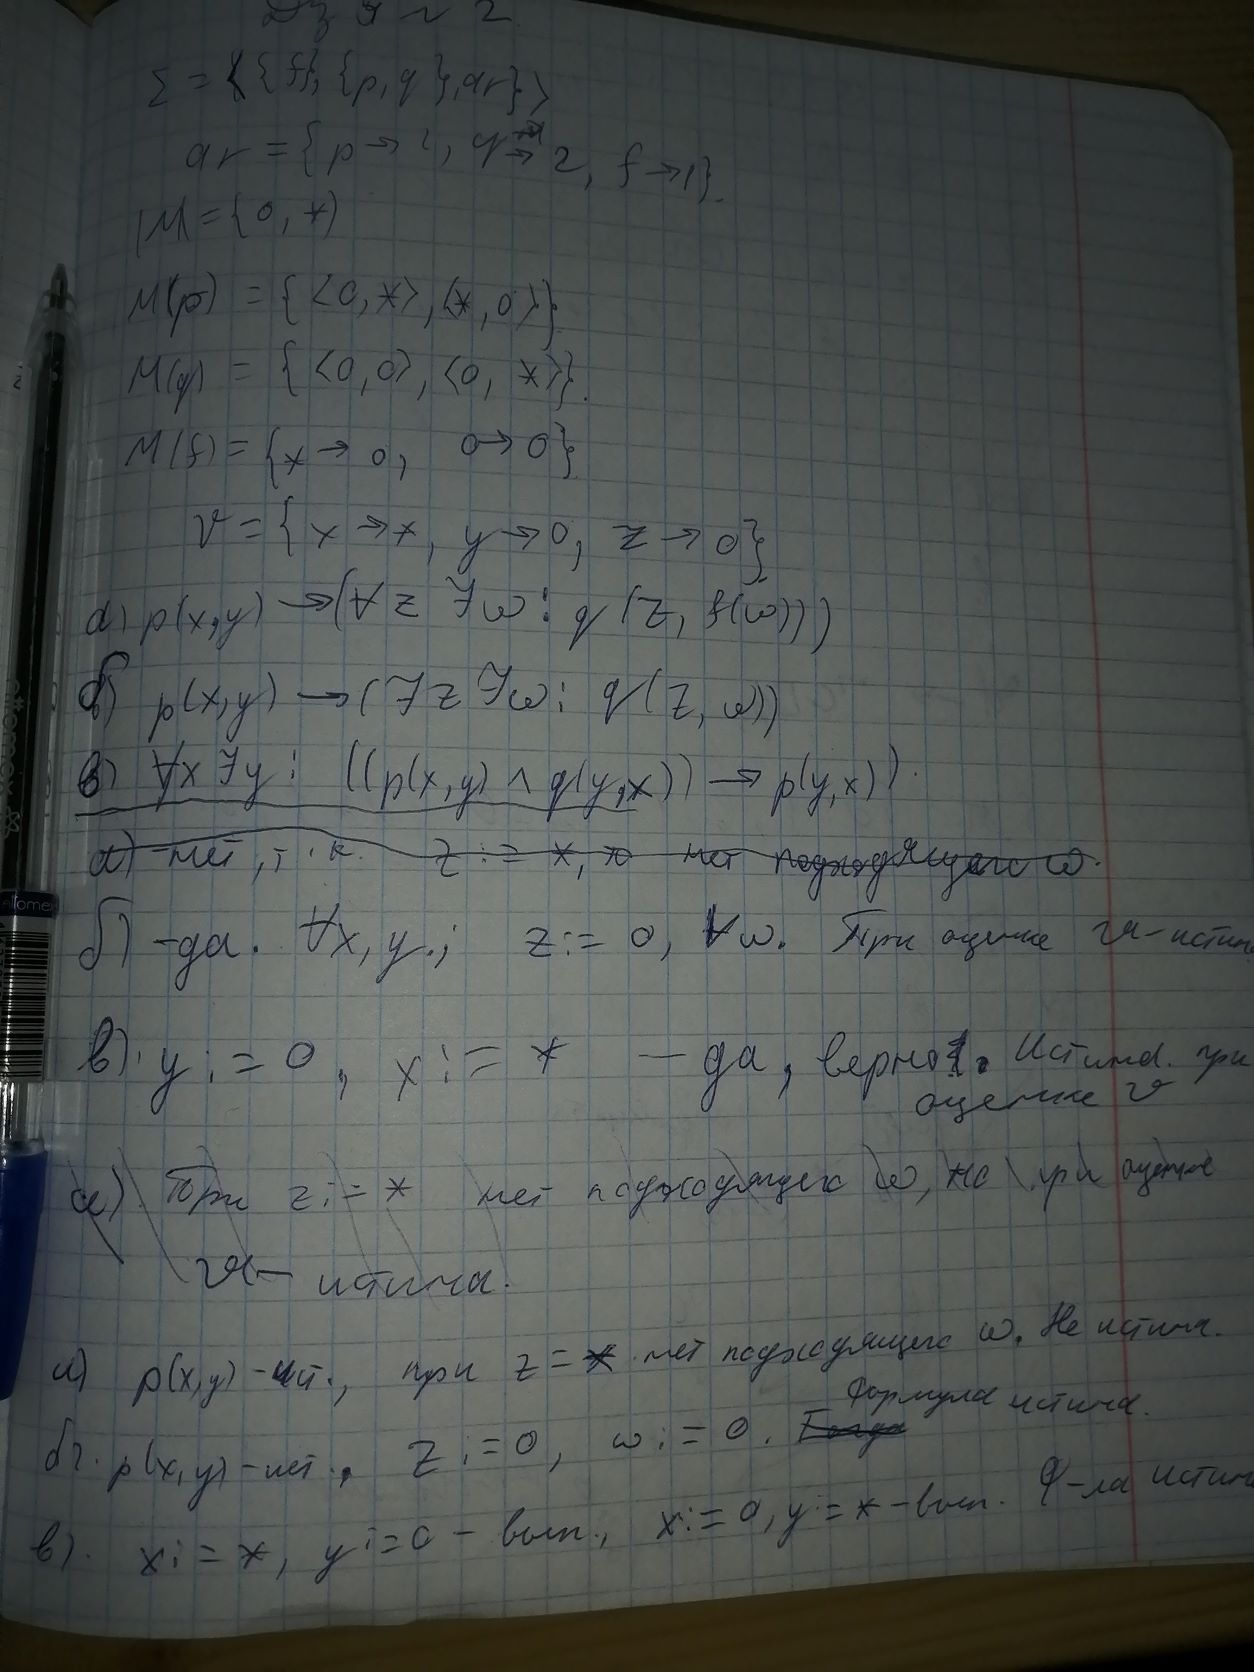 ДЗ я ~ 2.
Σ = ⟨{f}, {p, q}, ar⟩
ar = {p → 2, q → 2, f → 1}.
|M| = {0, *}
M(p) = {⟨0, *⟩, ⟨*, 0⟩}.
M(q) = {⟨0, 0⟩, ⟨0, *⟩}.
M(f) = {* → 0, 0 → 0}.
v = {x → *, y → 0, z → 0}
а) p(x,y) → (∀z ∃w: q(z, f(w)))
б) p(x,y) → (∃z ∃w: q(z, w))
в) ∀x ∃y: ((p(x,y) ∧ q(y,x)) → p(y,x)).
а) - нет, т.к. z := *, нет подходящего w.
б) - да. ∀x, y.; z := 0, ∀w. При оценке v - истин
в). y := 0, x := * - да, верно. Истина. при
оценке v
а) При z := * нет подходящих w, но при оценке
v - истина.
а) p(x,y) - ист., при z = * нет подходящего w. Не истин.
б). p(x,y) - ист., z := 0, w := 0. Тогда Формула истина.
в). x := *, y := 0 - вып., x := 0, y := * - вып. Ф-ла истин
attomex